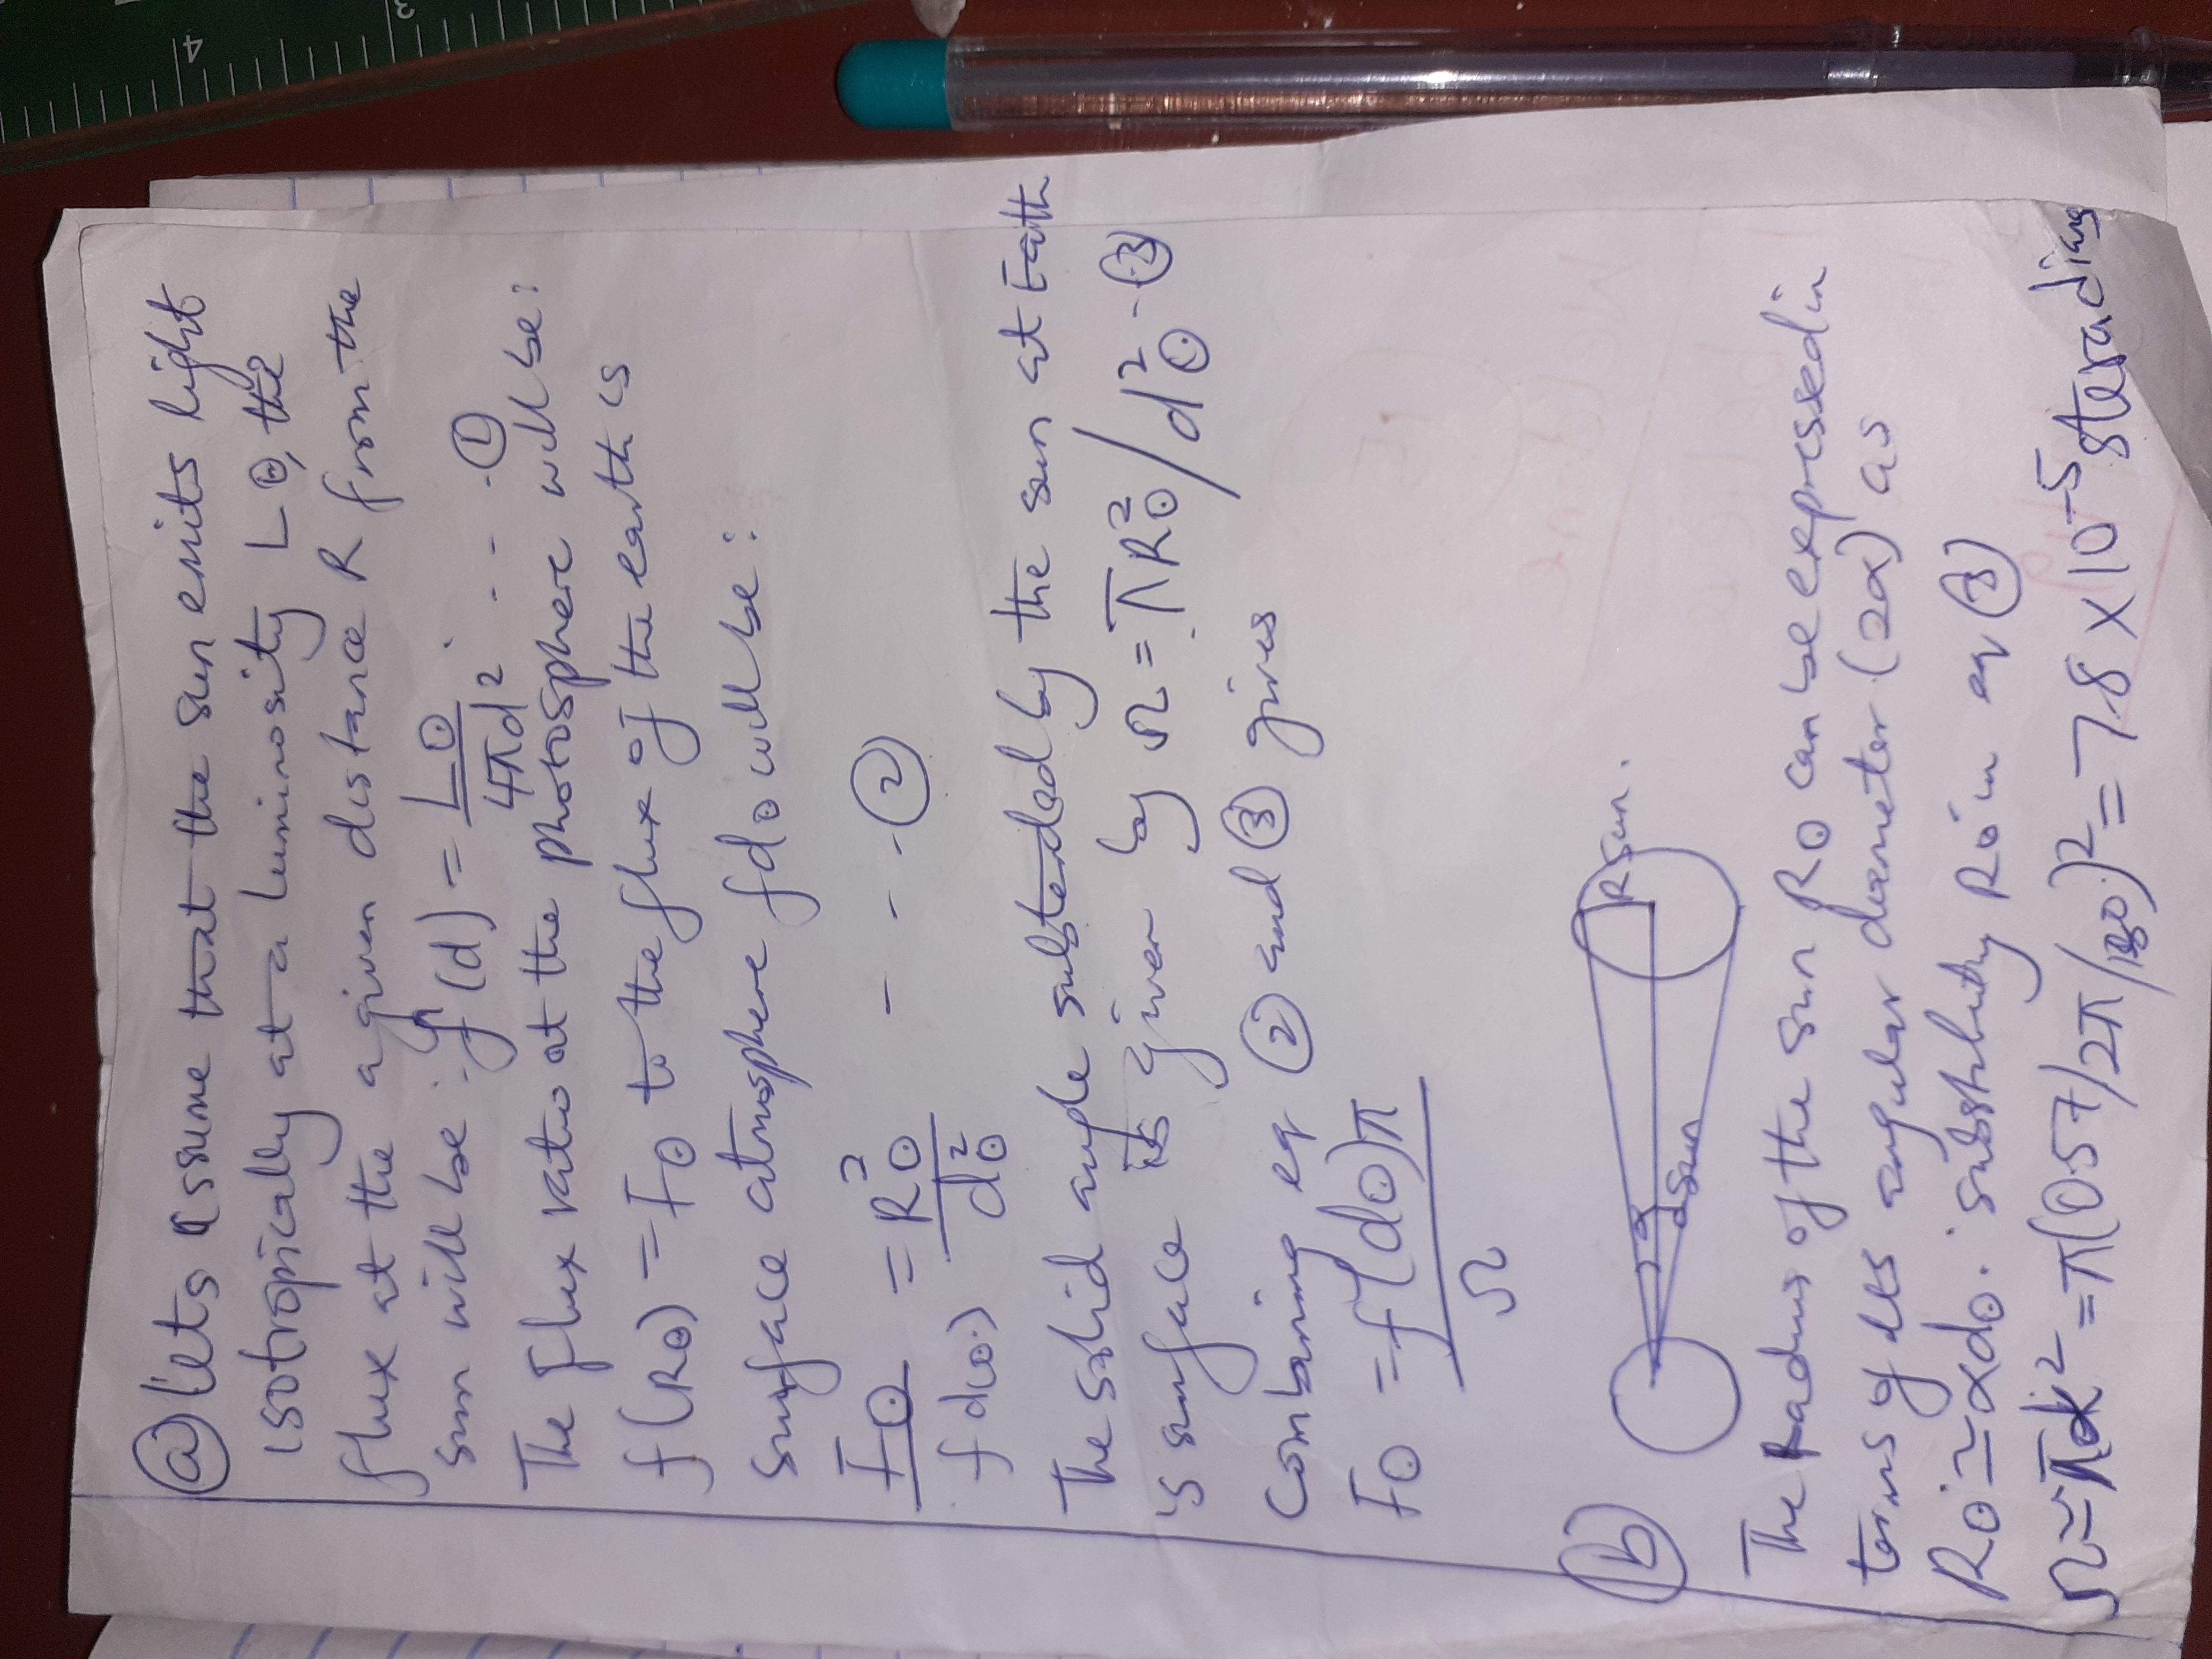 (a) lets assume that the sun emits light
isotropically at a luminosity L⊙, the
flux at the a given distance R from the
sun will be : f(d) = L⊙/4πd² . . . . (1)
The flux ratio at the photosphere will be:
f(R⊙) = F⊙ to the flux of the earth is
surface atmosphere fd⊙ will be:
F⊙/fd(⊙) = R²⊙/d²⊙ - - - - (2)
The solid angle substended by the sun at Earth
is surface is given by Ω = πR²⊙/d²⊙ -- (3)
Combaning eq (2) and (3) gives
F⊙ = f(d⊙)π/Ω
(b)
α
dsun
Rsun.
The radius of the sun R⊙ can be expressed in
terms of its angular diameter (2α) as
R⊙ ≃ αd⊙. substituting R⊙ in eq (3)
Ω ≃ πα² = π(0.57/2π/180)² = 7.8 × 10⁻⁵ steradians
4
3